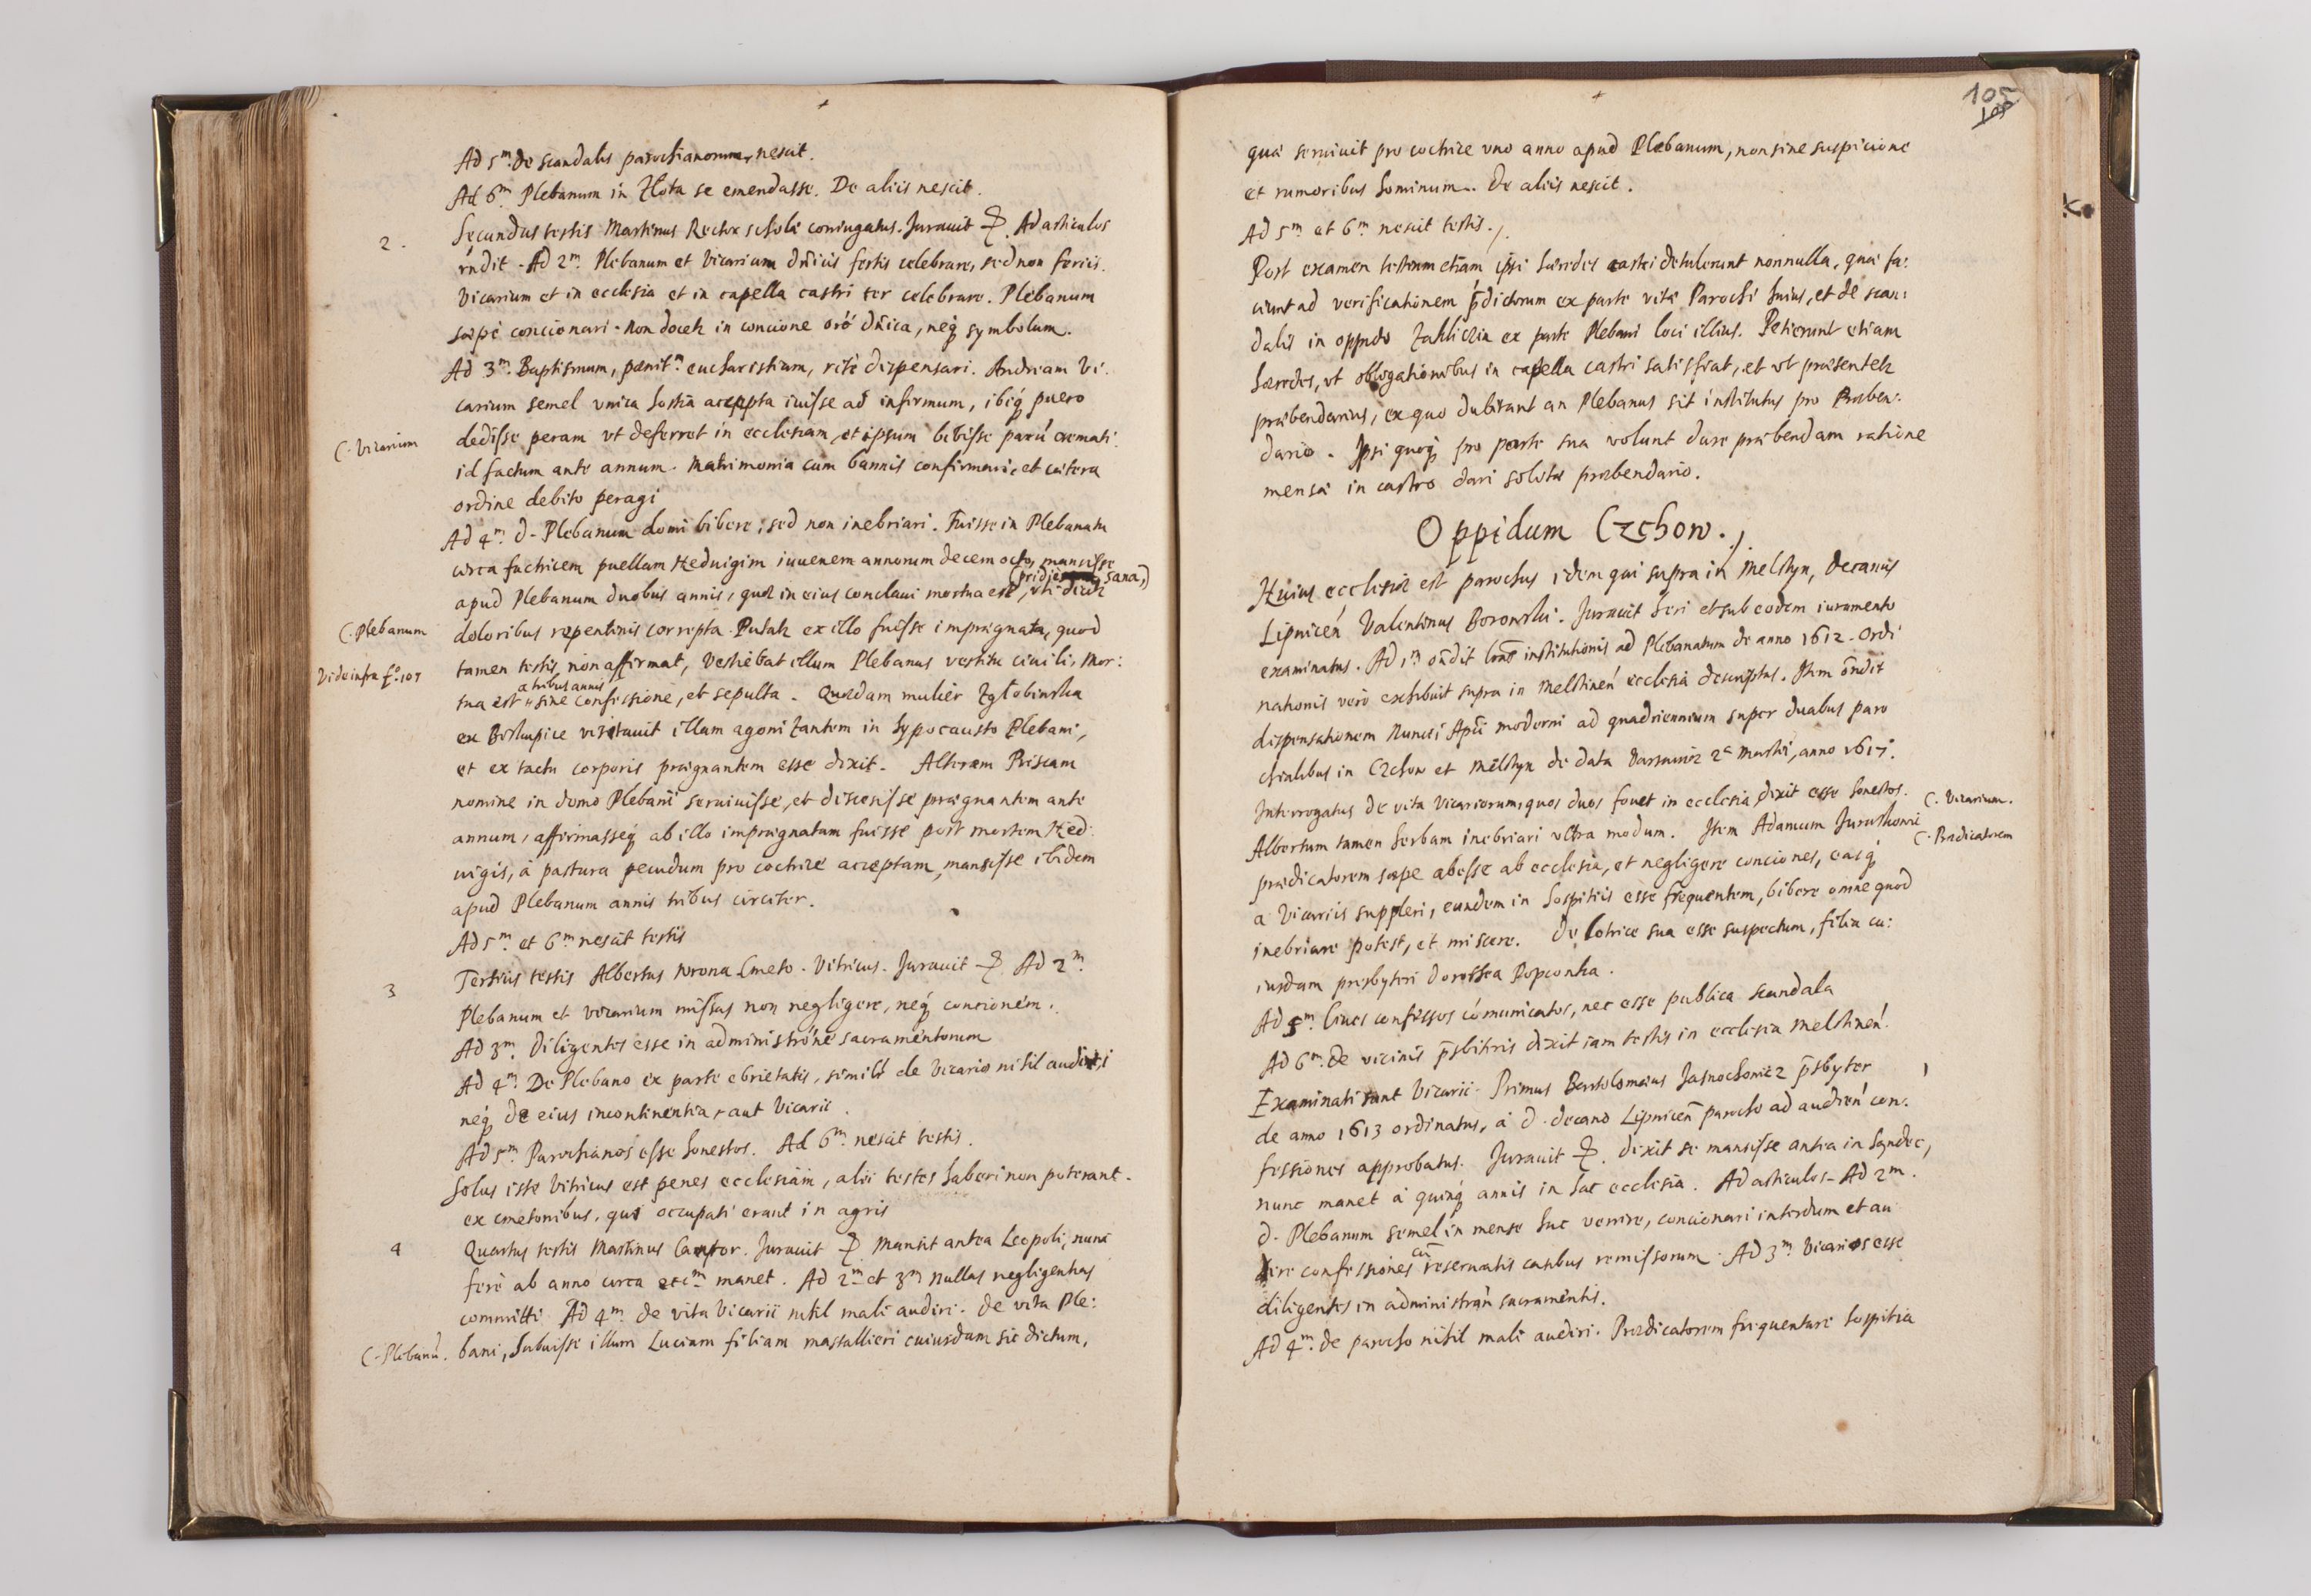 Ad 5m. de scandalis parochianorum, nescit.
Ad 6m. Plebanum in Zlota se emendasse. De aliis nescit.
2. Secundus testis Martinus Rector scholæ coniugatus. Jurauit Ad articulos
rndit. Ad 2m. Plebanum et Vicarium dnicis festis celebrare, sed non feriis.
Vicarium et in ecclesia et in capella castri ter celebrare. Plebanum
sæpe concionari. Non docet in concione orõ dnica, neq symbolum.
Ad 3m. Baptismum, pœnit.m eucharistiam, rite dispensari. Andream Vi-
carium semel vnica hostia accepta iuisse ad infirmum, ibiq puero
C. Vicarium
dedisse peram vt deferret in ecclesiam, et ipsum bibisse parũ cremati.
id factum ante annum. Matrimonia cum bannis confirmari, et cætera
ordine debito peragi
Ad 4m. d. Plebanum domi bibere, sed non inebriari. Fuisse in Plebanatu
circa factricem puellam Heduigim iuuenem annorum decem octo, mansisse
(pridie sana,)
apud Plebanum duobus annis, quæ in eius conclaui mortua est, vti dicit
C. Plebanum
doloribus repentinis correpta. Putat ex illo fuisse imprægnata, quod
Vide infra fo. 107
tamen testis non affirmat, Vestiebat illum Plebanus vestitu ciuili, Mor:
a tribus annis
tua est sine confessione, et sepulta. Quædam mulier Zglobinska
ex visitauit illam agonizantem in hypocausto Plebani,
et ex tactu corporis prægnantem esse dixit. Alteram Priscam
nomine in domo Plebani seruiuisse, et discessisse prægnantem ante
annum, affirmasseq ab illo imprægnatam fuisse post mortem Hed-
uigis, à pastura pecudum pro coctrice acceptam, mansisse ibidem
apud Plebanum annis tribus circiter.
Ad 5m. et 6m nescit testis
3 Tertius testis Albertus Wrona Cmeto. Vitricus. Jurauit Ad 2m.
Plebanum et vicarium missas non negligere, neq concionem.
Ad 3m. Diligentes esse in administrõne sacramentorum
Ad 4m. De Plebano ex parte ebrietatis, similr de Vicario nihil audiri
neq de eius incontinentia, aut Vicarii.
Ad 5m. Parochianos esse honestos. Ad 6m. nescit testis.
Solus iste Vitricus est penes ecclesiam, alii testes haberi non poterant.
ex cmetonibus, qui occupati erant in agris
4 Quartus testis Martinus Cantor. Jurauit Mansit antea Leopoli, nunc
ferè ab anno circa manet. Ad 2m. et 3m nullas negligentias
committi. Ad 4m. de vita Vicarii nihil mali audiri. De vita Ple:
C. Plebanũ.
bani, habuisse illum Luciam filiam massallieri cuiusdam sic dictum,
105
quæ seruiuit pro coctrice vno anno apud Plebanum, non sine suspicione
et rumoribus hominum. De aliis nescit.
Ad 5m. et 6m nescit testis.
Post examen testium etiam ipsi hæredes castri detulerunt nonnulla, quæ fa:
ciunt ad verificationem p̃dictorum ex parte vitæ Parochi huius, et de scan:
dalis in oppido Zakliczin ex parte Plebani loci illius. Petierunt etiam
hæredes, vt obligationibus in capella castri satisfiat, et vt præsentetr
præbendarius, ex quo dubitant an Plebanus sit institutus pro Præben:
dario. Ipsi quoq pro parte sua volunt dare præbendam ratione
mensæ in castro dari solitæ præbendario.
Oppidum Czchow.
Huius ecclesiæ est parochus idem qui supra in Melstyn, decanus
Lipnicen Valentinus Borowski. Jurauit heri et sub eodem iuramento
examinatus. Ad 1m. oñdit institutionis ad Plebanatum de anno 1612. Ordi
nationis verò exhibuit supra in Melstinen ecclesia descriptas. Item oñdit
dispensationem Nuncii Apci moderni ad quadriennium super duabus paro
chialibus in Czchow et Melstyn de data Varsauiæ 2a Martii, anno 1617.
Interrogatus de vita Vicariorum, quos duos fouet in ecclesia dixit esse honestos.
C. Vicarium.
Albertum tamen Serbam inebriari vltra modum. Item Adamum
C. Prædicatorem
prædicatorem sæpe abesse ab ecclesia, et negligere conciones, easq
a Vicariis suppleri, eundem in hospitiis esse frequentem, bibere omne quod
inebriare potest, et miscere. De lotrice sua esse suspectum, filia cu:
iusdam presbyteri Dorothea Popconka.
Ad 5m. Ciues confessos cõmunicatos, nec esse publica scandala
Ad 6m. de vicinis p̃sbiteris dixit iam testis in ecclesia Melstinen.
Examinati sunt Vicarii. Primus Bartolomæus Jasnochowicz p̃sbyter 1
de anno 1613 ordinatus, à d. decano Lipnicen parocho ad audien con-
fessiones approbatus. Jurauit dixit se mansisse antea in Sandec,
nunc manet à quinq annis in hac ecclesia. Ad articulos. Ad 2m.
d. Plebanum semel in mense huc venire, concionari interdum et au
cũ
dire confessiones reseruatis casibus remissorum. Ad 3m. Vicarios esse
diligentes in administran sacramentis.
Ad 4m. de parocho nihil mali audiri. Prædicatorem frequentare hospitia